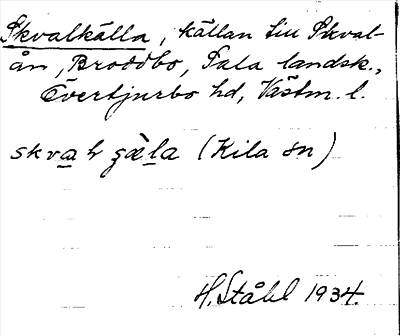 Skvalkälla, källan till Skval-
ån, Broddbo, Sala landsk.,
Övertjurbo hd, Västm. l.
skval (Kila sn)
H. Ståhl 1934.